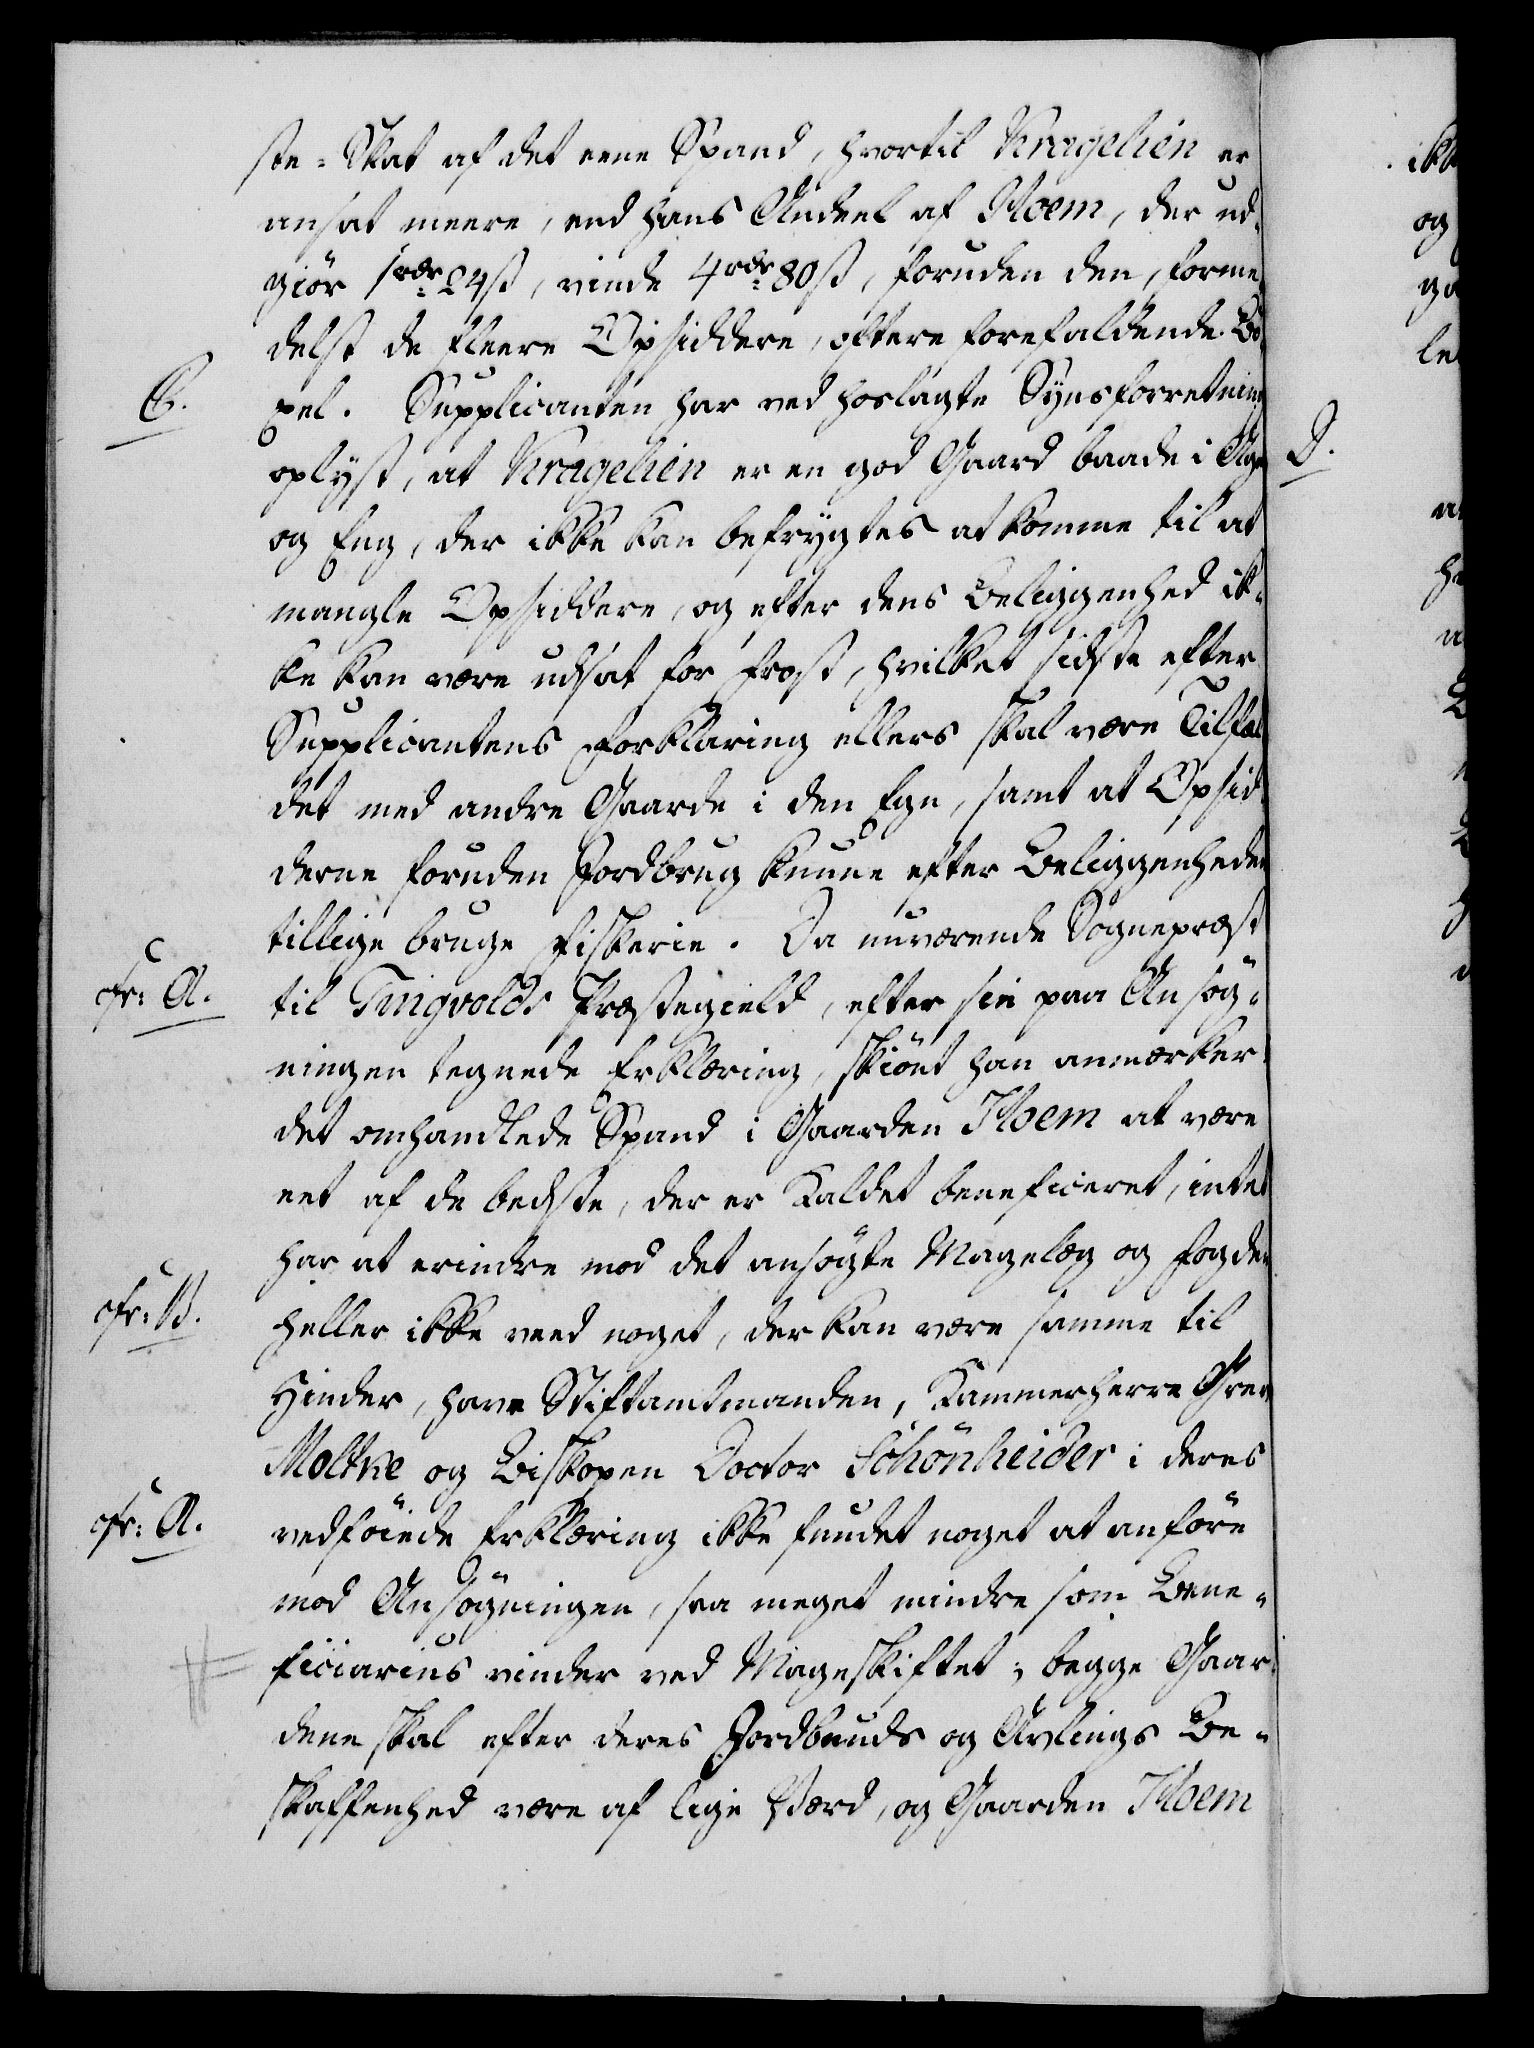 ste-Skat af det eene Spand, hvortil Kragelien er
ansat meere, end hans Andeel af Hoem, der ud-
giör 1 rdr 24 ß, vinde 4 rdr 80 ß, foruden den, forme-
delst de fleere Opsiddere, oftere forefaldende Böx-
C. pel. Supplicanten har ved hoslagte Synsforretning
oplyst, at Kragelien er en god Gaard baade i Ager D.
og Eng, der ikke kan befrygtes at komme til at
mangle Opsiddere, og efter dens Beliggenhed ik-
ke kan være udsat for Frost, hvilket sidste efter
Supplicantens Forklaring ellers skal være Tilfæl-
det med andre Gaarde i den Egn, samt at Opsid-
derne foruden Jordbrug kunne efter Beliggenheden
tillige bruge Fiskerie. Da nuværende Sognepræst
cfr: A. til Tingvolds Præstegield, efter sin paa Ansög-
ningen tegnede Erklæring, skiönt han anmærker
det omhandlede Spand i Gaarden Hoem at være
eet af de bedste, der er Kaldet beneficeret, intet
har at erindre mod det ansögte Magelæg og Fogden
cfr: B. heller ikke veed noget, der kan være samme til
Hinder, have Stiftamtmanden, Kammerherre Grev
Moltke og Biskopen Doctor Schönheider i deres
cfr: A. vedföiede Erklæring ikke fundet noget at anföre
mod Ansögningen, saa meget mindre som Bene-
ficiarius vinder ved Mageskiftet; begge Gaar-
dene skal efter deres Jordbunds og Avlings Be-
skaffenhed være af lige Værd, og Gaarden Hoem